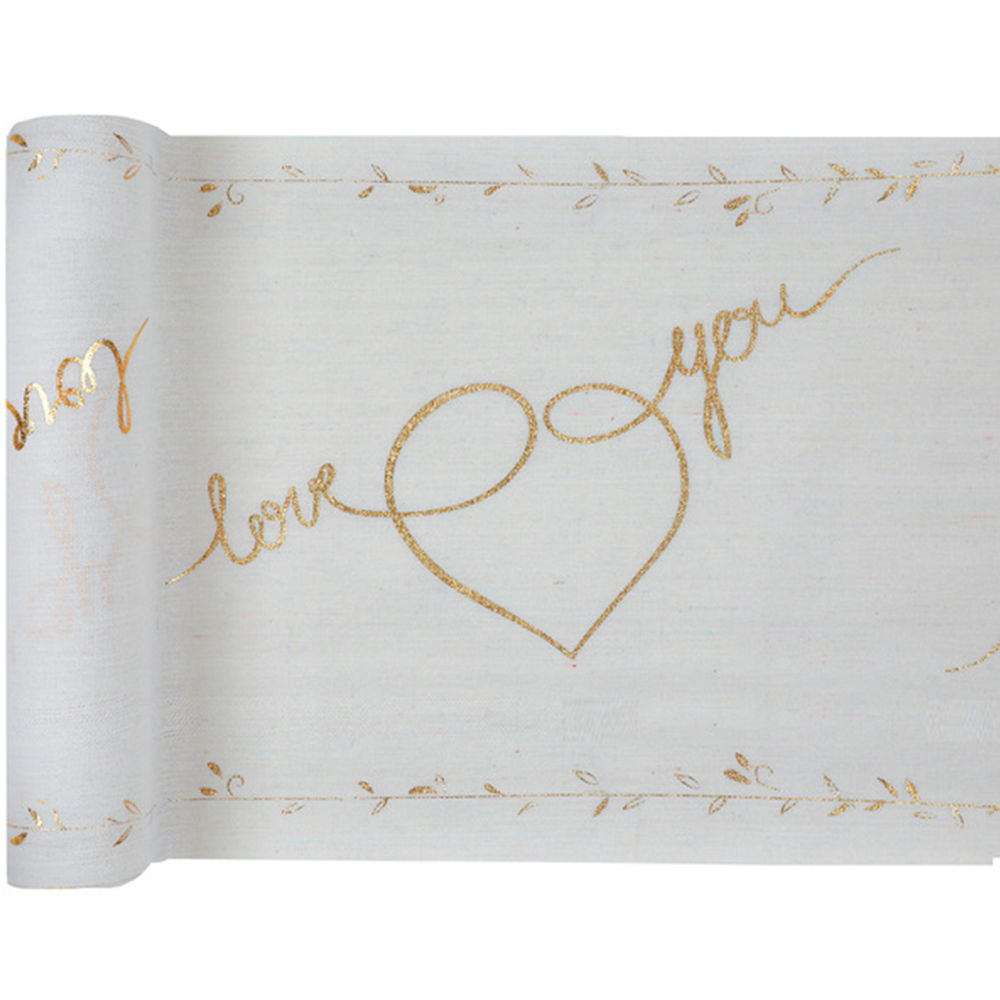 love you
you